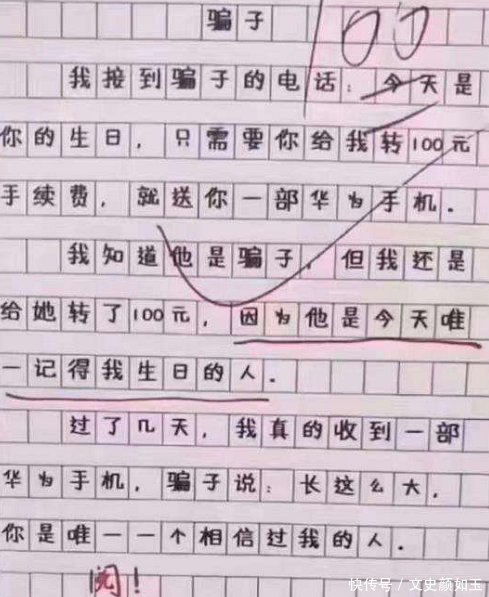 骗子
100
我接到骗子的电话：今天是
你的生日，只需要你给我转100元
手续费，就送你一部华为手机．
我知道他是骗子，但我还是
给她转了100元，因为他是今天唯
一记得我生日的人．
过了几天，我真的收到一部
华为手机，骗子说：长这么大，
你是唯一一个相信过我的人．
阅！
快传号／文史颜如玉